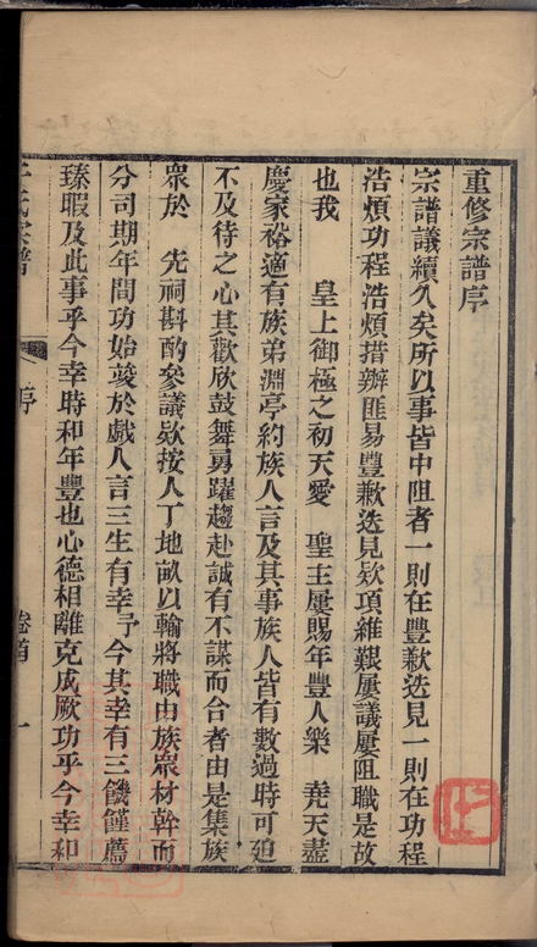 重修宗譜序
宗譜議續久矣所以事皆中阻者一則在豐歉迭見一則在功程
浩煩功程浩煩措辦匪易豐歉迭見欵項維艱屢議屢阻職是故
也我 皇上御極之初天愛 聖主屢賜年豐人樂 堯天盡
慶家裕適有族弟淵亭約族人言及其事族人皆有數過時可迨
不及待之心其歡欣鼓舞勇躍趨赴誠有不謀而合者由是集族
衆於 先祠斟酌參議欵按人丁地畝以輸將職由族衆材幹而
分司期年間功始竣於戲人言三生有幸予今其幸有三饑饉薦
臻暇及此事乎今幸時和年豐也心德相離克成厥功乎今幸和
氏宗譜 序 卷首 一